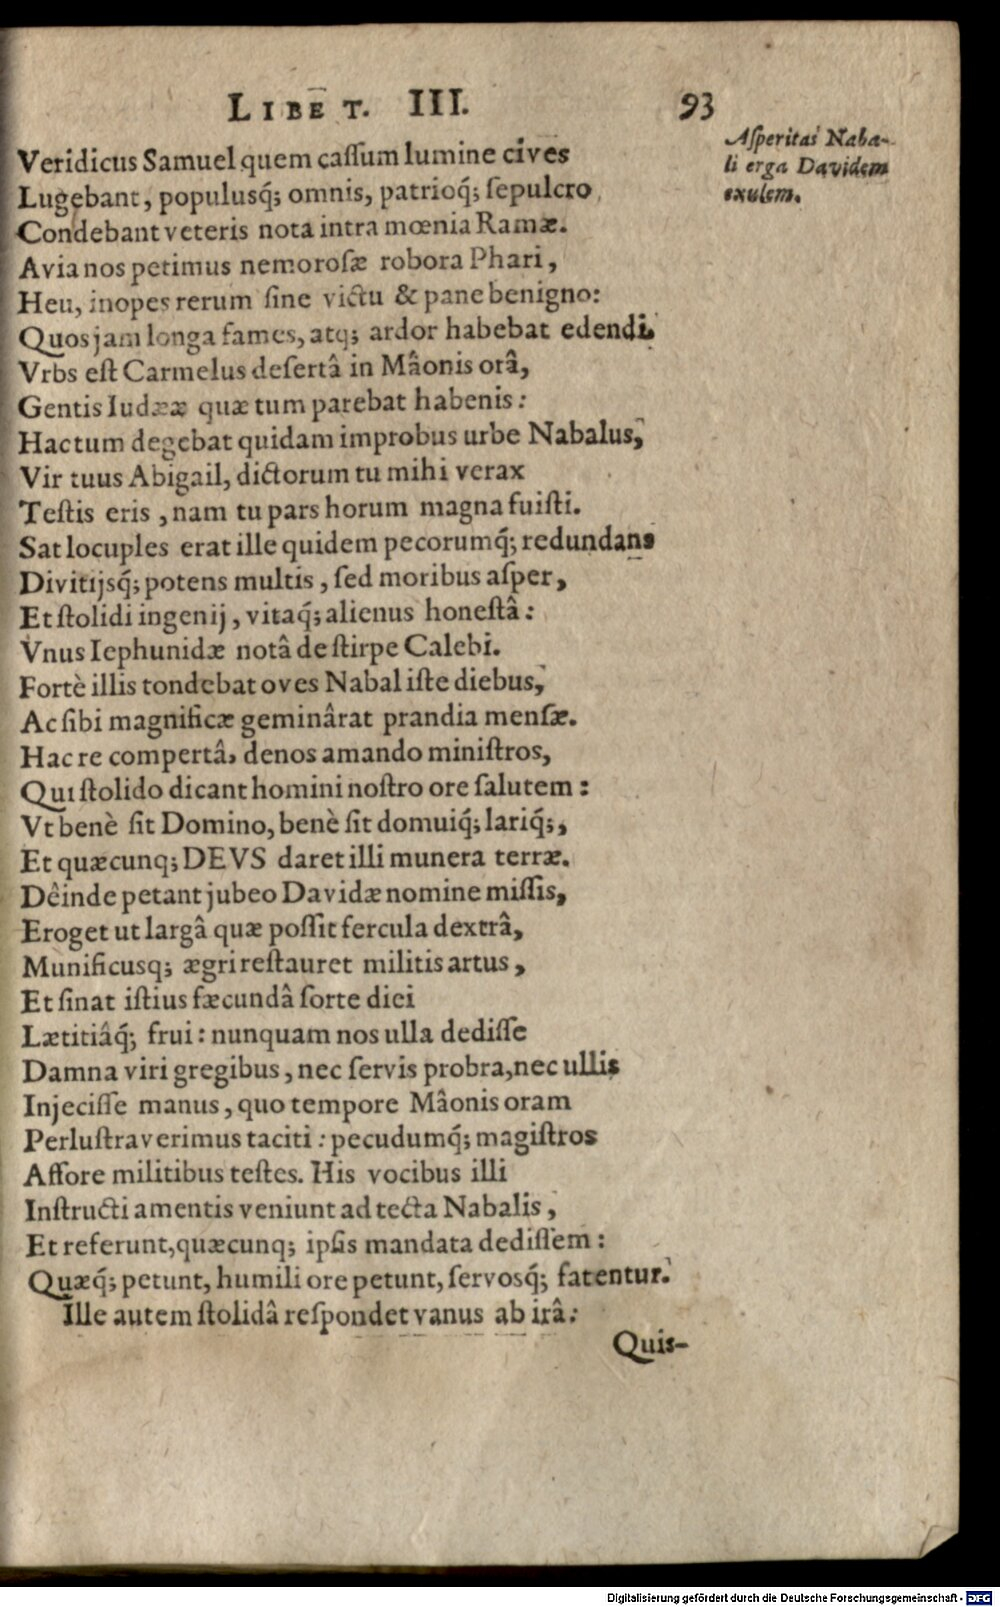 LIBE T. III. 93
Asperitas Naba-
li erga Davidem
exulem.
Veridicus Samuel quem caſſum lumine cives
Lugebant, populusq́; omnis, patrioq́; ſepulcro
Condebant veteris nota intra mœnia Ramæ.
Avia nos petimus nemoroſæ robora Phari,
Heu, inopes rerum ſine victu & pane benigno:
Quos jam longa fames, atq; ardor habebat edendi.
Vrbs eſt Carmelus deſertâ in Mâonis orâ,
Gentis Iudææ quæ tum parebat habenis:
Hac tum degebat quidam improbus urbe Nabalus,
Vir tuus Abigail, dictorum tu mihi verax
Teſtis eris, nam tu pars horum magna fuiſti.
Sat locuples erat ille quidem pecorumq́; redundans
Divitijsq́; potens multis, ſed moribus aſper,
Et ſtolidi ingenij, vitaq́; alienus honeſtâ:
Vnus Iephunidæ notâ de ſtirpe Calebi.
Fortè illis tondebat oves Nabal iſte diebus,
Ac ſibi magnificæ geminârat prandia menſæ.
Hac re compertâ, denos amando miniſtros,
Qui ſtolido dicant homini noſtro ore ſalutem:
Vt benè ſit Domino, benè ſit domuiq́; lariq́;,
Et quæcunq; DEVS daret illi munera terræ.
Dêinde petant jubeo Davidæ nomine miſſis,
Eroget ut largâ quæ poſſit fercula dextrâ,
Munificusq; ægri reſtauret militis artus,
Et ſinat iſtius fæcundâ ſorte diei
Lætitiâq́; frui: nunquam nos ulla dediſſe
Damna viri gregibus, nec ſervis probra, nec ullis
Injeciſſe manus, quo tempore Mâonis oram
Perluſtraverimus taciti: pecudumq́; magiſtros
Affore militibus teſtes. His vocibus illi
Inſtructi amentis veniunt ad tecta Nabalis,
Et referunt, quæcunq; ipſis mandata dediſſem:
Quæq́; petunt, humili ore petunt, ſervosq́; fatentur.
Ille autem ſtolidâ reſpondet vanus ab irâ:
Quis-
Digitalisierung gefördert durch die Deutsche Forschungsgemeinschaft - DFG